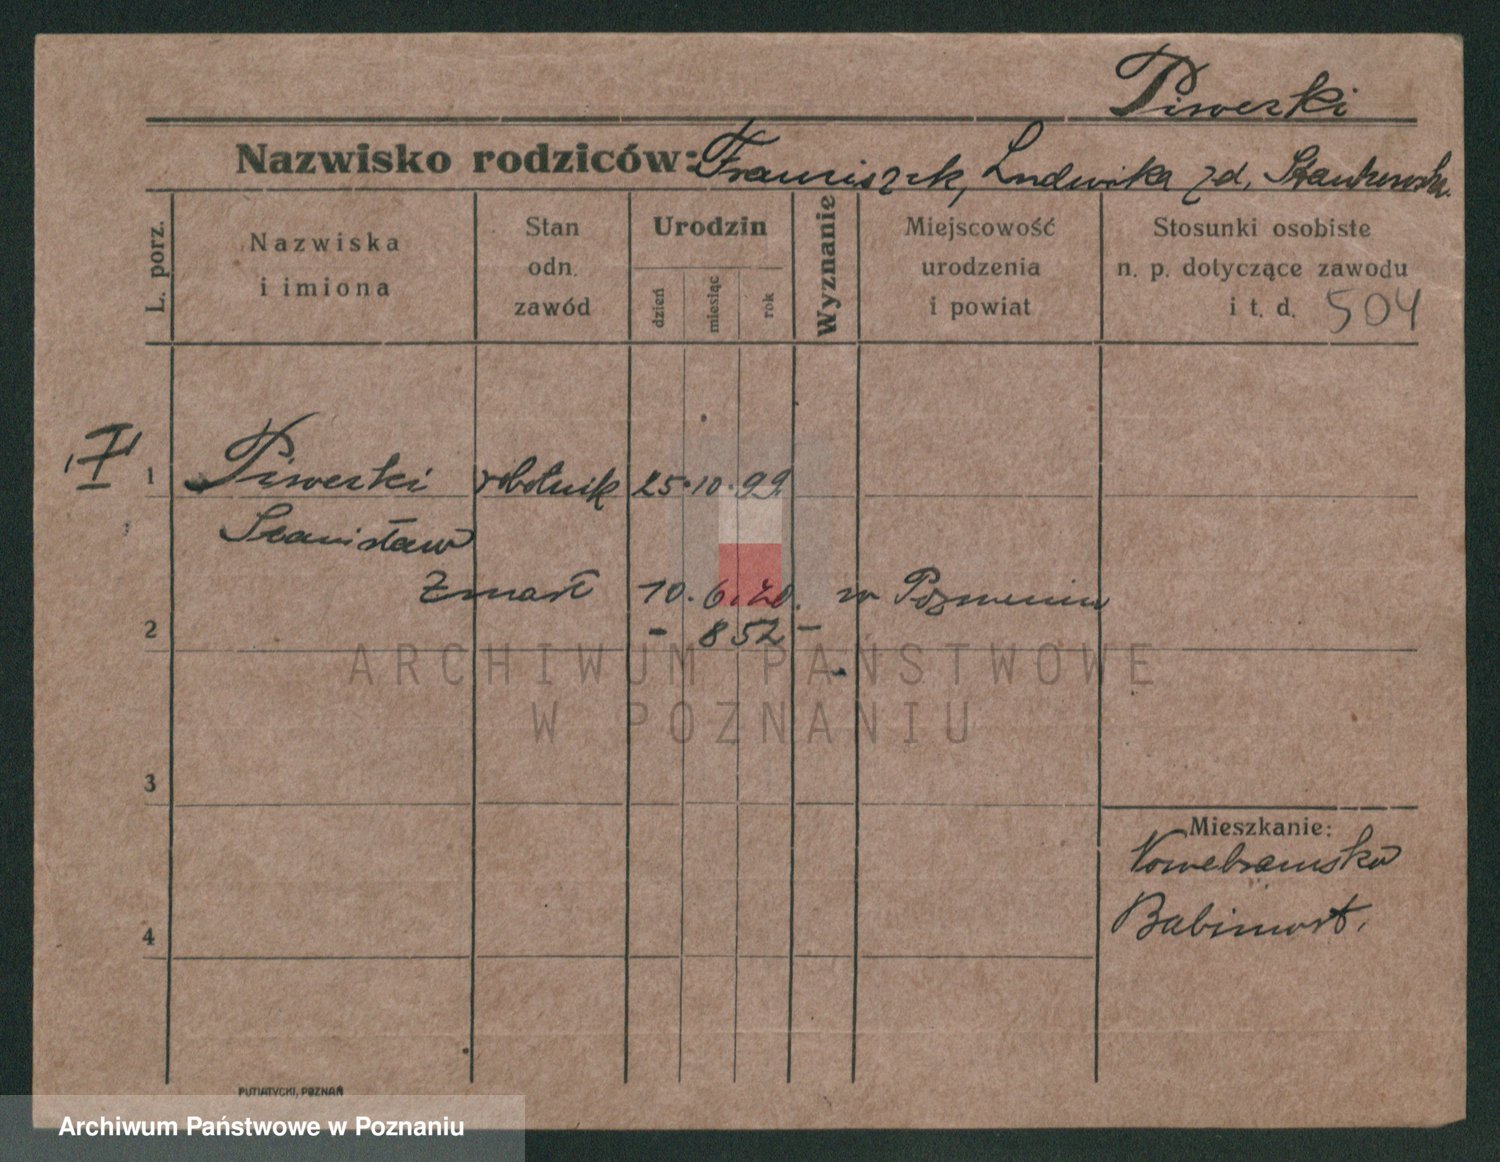 Piwecki
Nazwisko rodziców: Franciszek, Ludwika zd. Stankowska.
L. porz.
Nazwiska
i imiona
Stan
odn.
zawód
Urodzin
dzień
miesiąc
rok
Wyznanie
Miejscowość
urodzenia
i powiat
Stosunki osobiste
n. p. dotyczące zawodu
i t. d. 504
I
1 Piwecki robotnik 25.10.99.
Stanisław
Zmarł 10.6.20. w Poznaniu
2 - 852 -
ARCHIWUM PAŃSTWOWE
W POZNANIU
3
Mieszkanie:
Babimost.
4
PUTIATYCKI, POZNAŃ
Archiwum Państwowe w Poznaniu